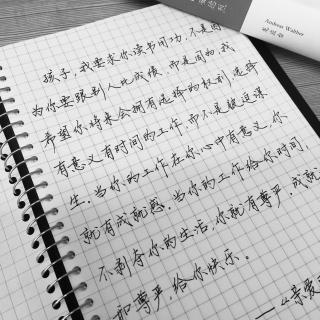 Andreas Wabber
孩子,我要求你读书用功,不是因
为你要跟别人比成绩,而是因为,我
希望你将来会拥有选择的权利,选择
有意义有时间的工作,而不是被迫谋
生。当你的工作在你心中有意义,你
就有成就感。当你的工作给你时间
不剥夺你的生活,你就有尊严,成就
和尊严,给你快乐。
——《亲爱